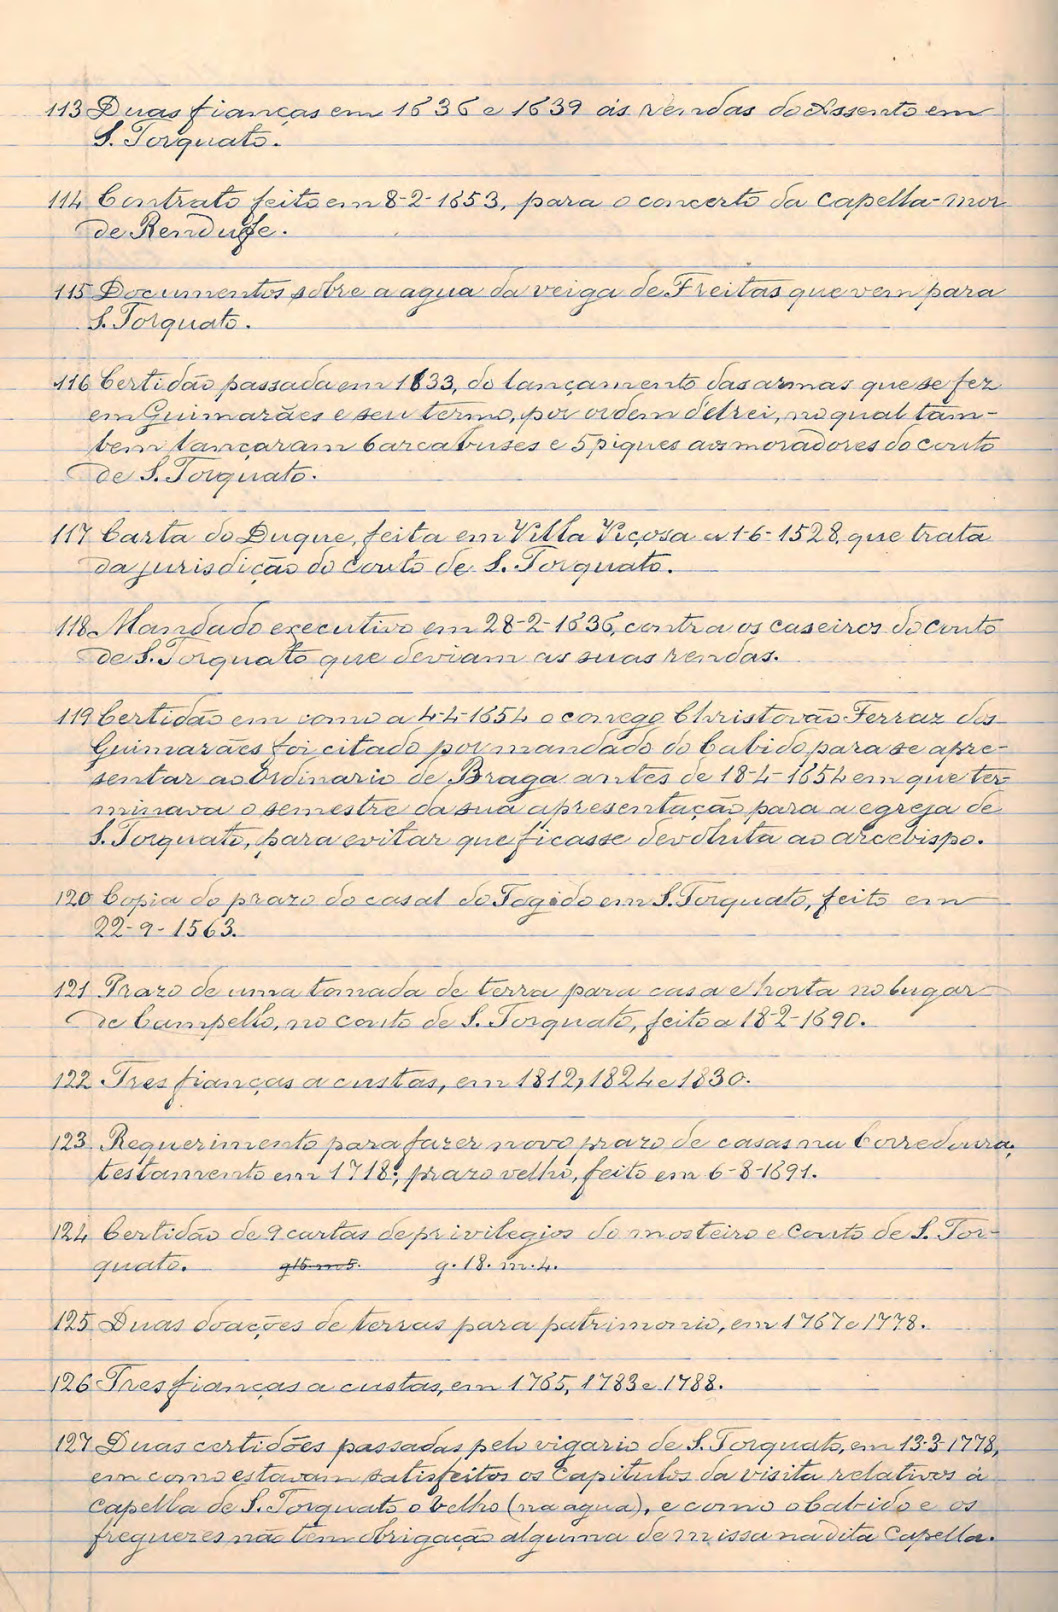 113 Duas fianças em 1636 e 1639 ás rendas do Assento em
S. Torquato.
114 Contrato feito em 8-2-1653, para o concerto da capella-mor
de Rendufe.
115 Documentos sobre a agua da veiga de Freitas que vem para
S. Torquato.
116 Certidão passada em 1633, do lançamento das armas que se fez
em Guimarães e seu termo, por ordem d'elrei, no qual tam-
bem lançaram 6 arcabuses e 5 piques aos moradores do couto
de S. Torquato.
117 Carta do Duque, feita em Villa Viçosa a 1-6-1528, que trata
da jurisdição do couto de S. Torquato.
118 Mandado executivo em 28-2-1636, contra os caseiros do couto
de S. Torquato que deviam as suas rendas.
119 Certidão em como a 4-4-1654 o conego Christovão Ferraz dos
Guimarães foi citado por mandado do Cabido para se apre-
sentar ao Ordinario de Braga antes de 18-4-1654 em que ter-
minava o semestre da sua apresentação para a egreja de
S. Torquato, para evitar que ficasse devoluta ao arcebispo.
120 Copia do prazo do casal do Togido em S. Torquato, feito em
22-9-1563.
121 Prazo de uma tomada de terra para casa e horta no lugar
de Campello, no couto de S. Torquato, feito a 18-2-1690.
122 Tres fianças a custas, em 1812, 1824 e 1830.
123 Requerimento para fazer novo prazo de casas na Corredoura;
testamento em 1718; prazo velho, feito em 6-8-1691.
124 Certidão de 9 cartas de privilegios do mosteiro e couto de S. Tor-
quato. g 15 m 5. g. 18. m. 4.
125 Duas doações de terras para patrimonio, em 1767 e 1778.
126 Tres fianças a custas, em 1765, 1783 e 1788.
127 Duas certidões passadas pelo vigario de S. Torquato, em 13-3-1778,
em como estavam satisfeitos os capitulos da visita relativos á
capella de S. Torquato o velho (na agua), e como o Cabido e os
freguezes não tem obrigação alguma de missa na dita capella.